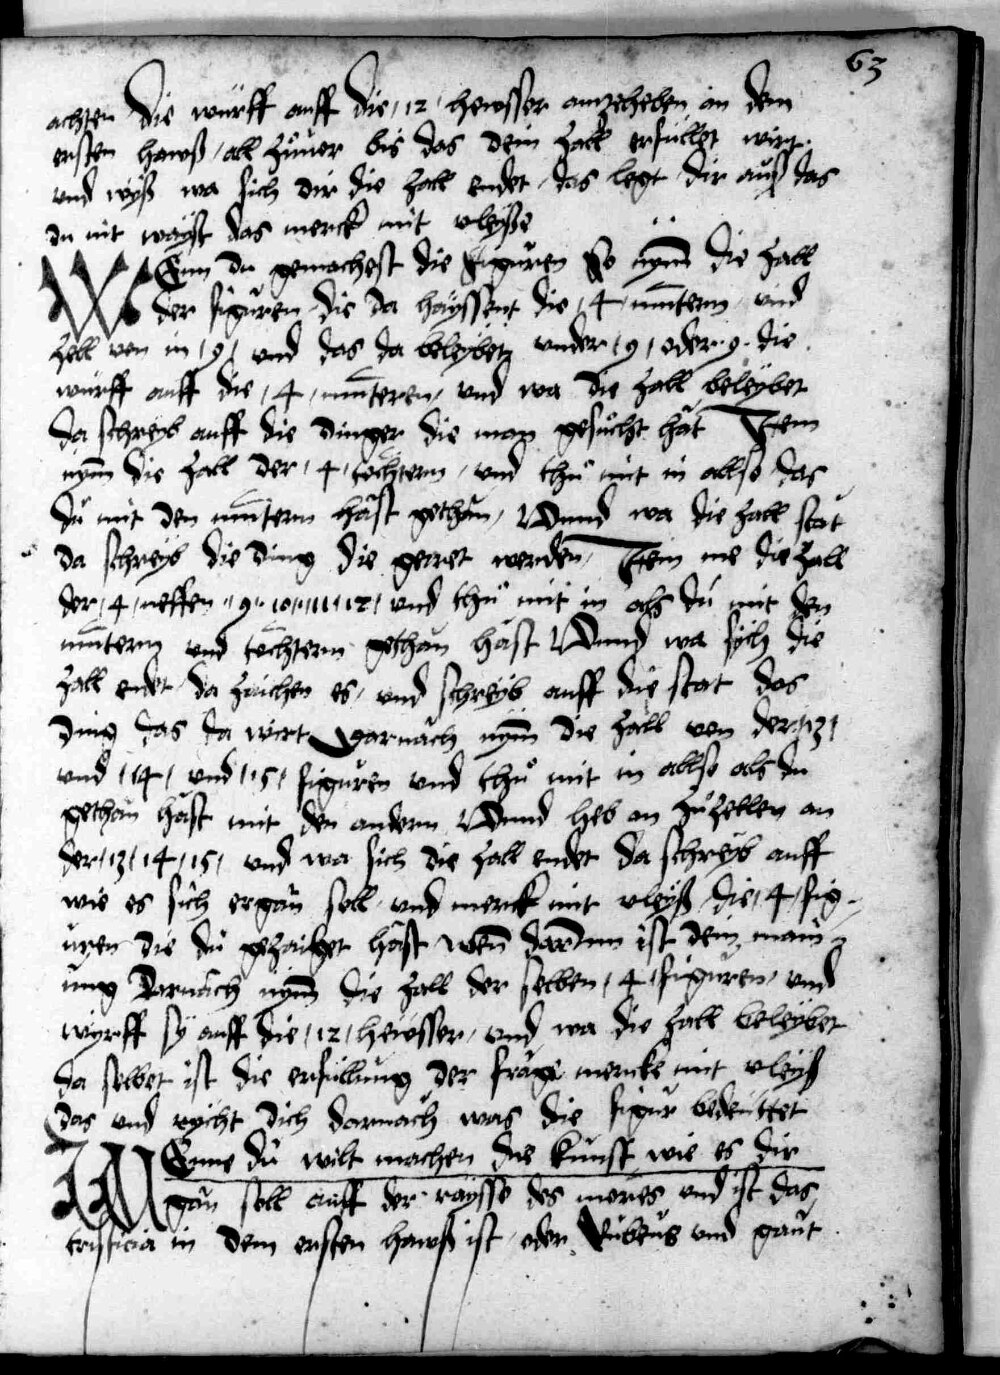 63
achten die würff auff die /12/ hewsser anzeheben an dem
ersten hawß / all zűuer bis das dein zall erfüllet wirt
vnd wyß wa sich dir die zall endet das legt dir auß das
du nit wayst das merck mit vleyße
WEnn du gemachest die figuren So nym̄ die zall
der figuren die da hayssent die /4/ mu̇term vnd
zell von in /9/ vnd das da beleybet vnder /9/ oder 9 die
würff auff die /4/ mu̇teren / vnd wa die zall beleybet
da schreyb auff die dinger die man gesücht hat Item
nym̄ die zall der /4/ töchterm / vnd thů mit in allso das
du mit den mu̇term hast gethan / Vnnd wa die zall stat
da schreyb die ding die gerret werden / Item me die zall
der /4/ neffen /9/ 10 /11/ 12/ vnd thů mit in als du mit den
mu̇term vnd töchterm gethan hast Vnnd wa sych die
zall endet da zaichen es / vnd schreyb auff die stat das
ding das da wirt Darnach nym̄ die zall von der /13/
vnd /14/ vnd /15/ figuren vnd thů mit in allso als du
gethan hast mit den andern Vnnd heb an zůzellen an
der /13/ 14 /15/ vnd wa sich die zall endet da schreyb auff
wie es sich ergan soll vnd merck mit vleyß die /4/ fig-
uren die du gezaichet hast wen̄ darinn ist dein main-
ung Darnach nym̄ die zall der selben /4/ figuren / vnd
wyrff sy auff die /12/ hewsser / vnd wa die zall beleybet
da selbet ist die erfüllung der frage mercke mit vleyß
das vnd rycht dich darnach was die figur bedeuttet
WEnne du wilt machen die kunst wie es dir
gan soll auff der raysse des meres vnd ist das
tristicia in dem ersten hawß ist oder Rubeus vnd gaut